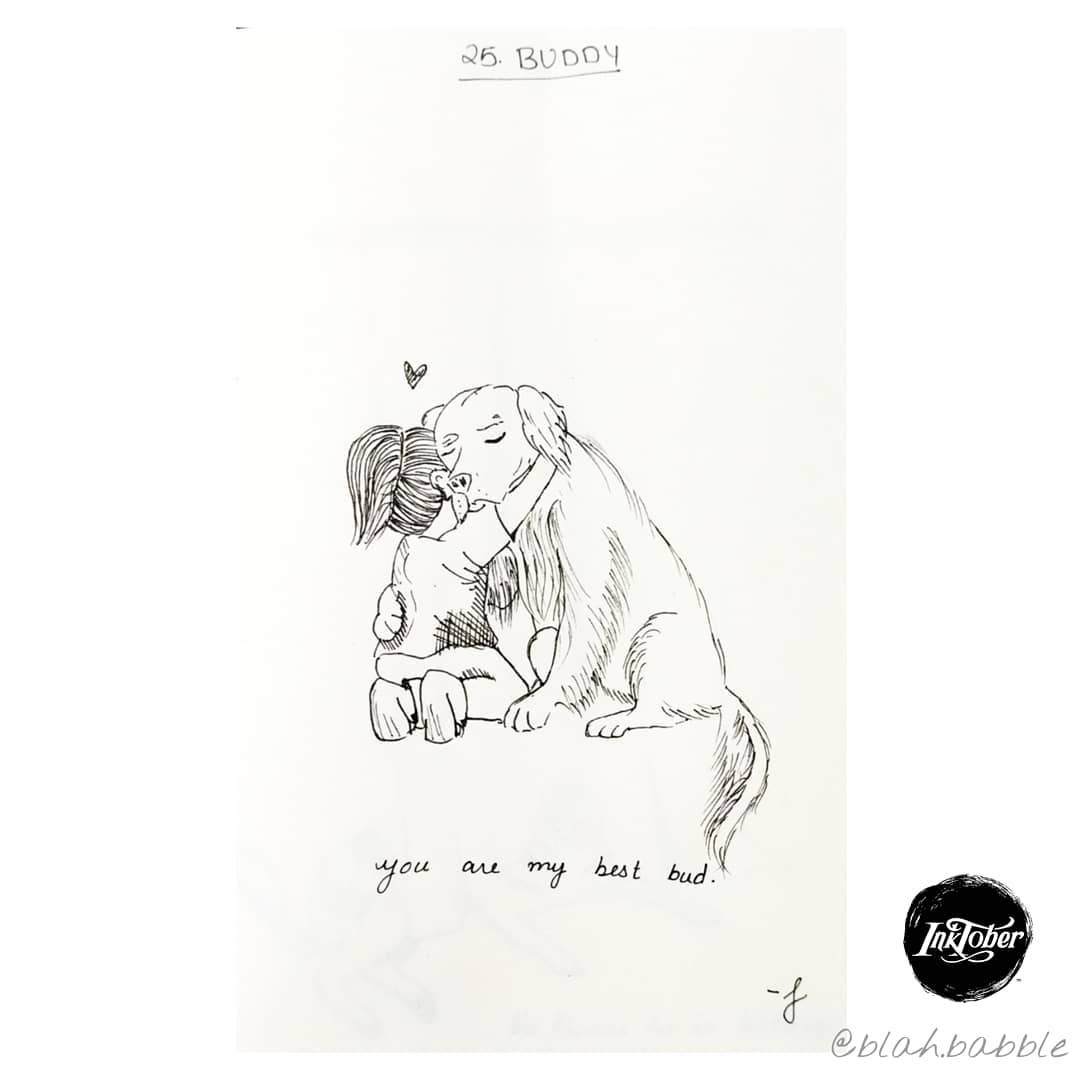 25. BUDDY
you are my best bud.
InkTober
@blah.babble